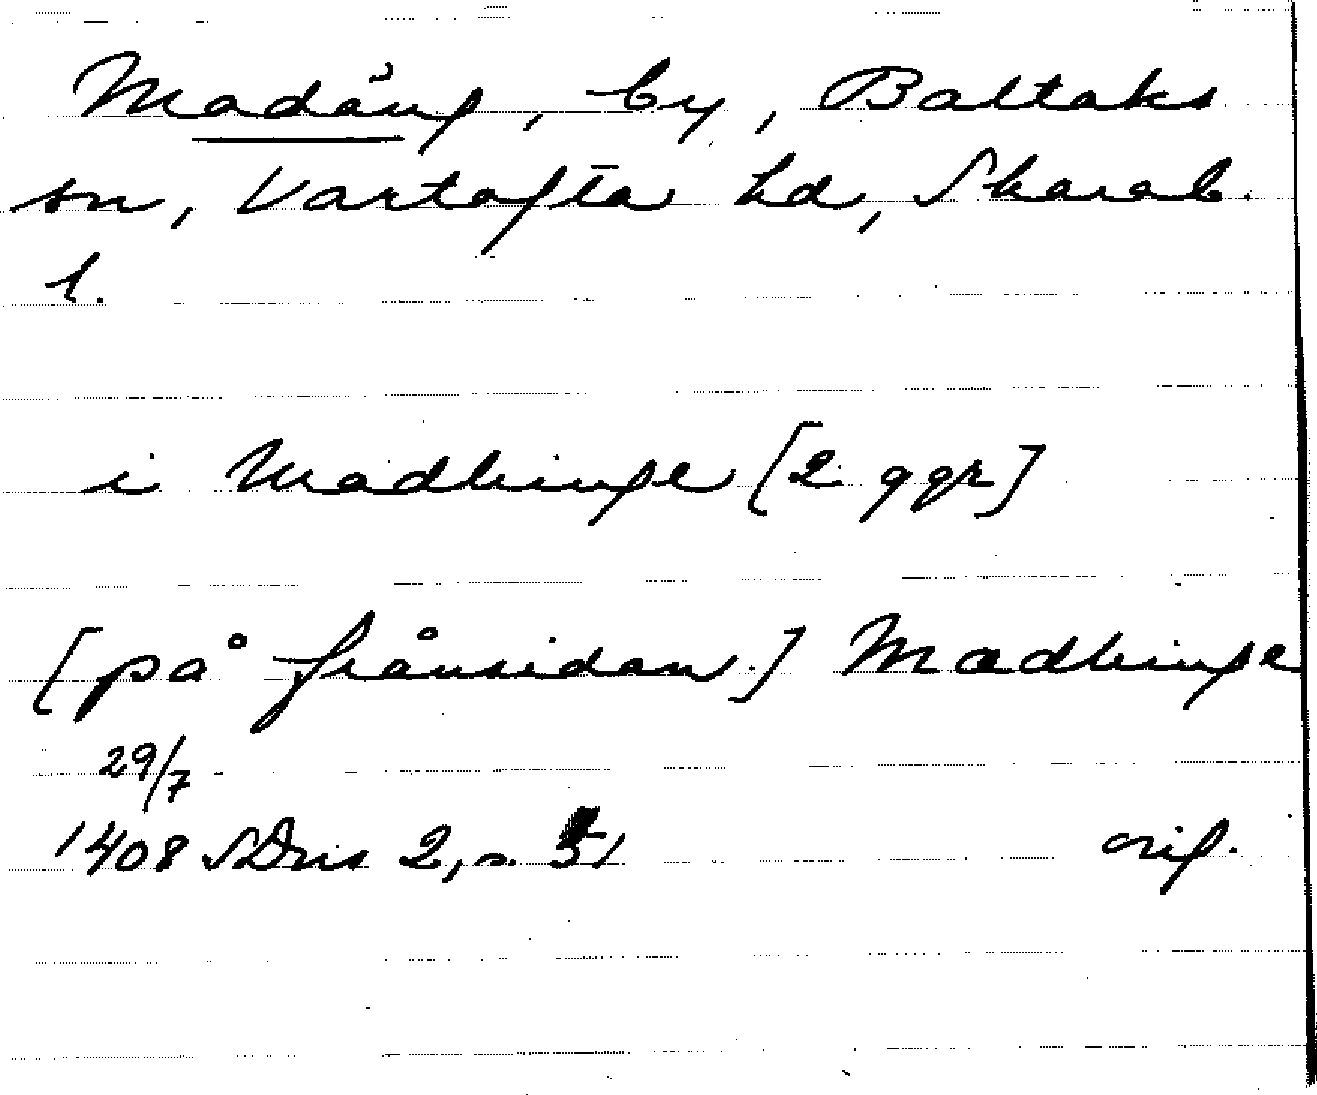 Madäng, by, Baltaks
sn, Vartofta hd, Skarab.
l.
i Madhinge [2 ggr]
[på frånsidan.] Madhinge
29/7
1408 SDns 2, s. 51
orig.